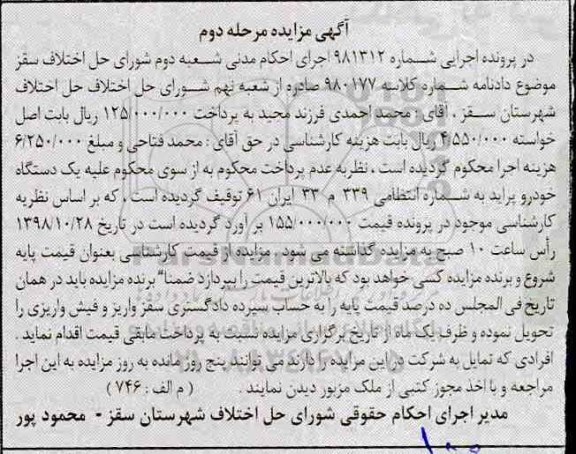 آگهی مزایده مرحله دوم
در پرونده اجرایی شماره ۹۸۱۳۱۲ اجرای احکام مدنی شعبه دوم شورای حل اختلاف سقز
موضوع دادنامه شماره کلاسه ۹۸۰۱۷۷ صادره از شعبه نهم شورای حل اختلاف حل اختلاف
شهرستان سقز ، آقای : محمد احمدی فرزند مجید به پرداخت ۱۲۵/۰۰۰/۰۰۰ ریال بابت اصل
خواسته ۴/۵۵۰/۰۰۰ ریال بابت هزینه کارشناسی در حق آقای : محمد فتاحی و مبلغ ۶/۲۵۰/۰۰۰
هزینه اجرا محکوم گردیده است ، نظربه عدم پرداخت محکوم به از سوی محکوم علیه یک دستگاه
خودرو پراید به شماره انتظامی ۳۳۹ م ۳۳ ایران ۶۱ توقیف گردیده است ، که بر اساس نظریه
کارشناسی موجود در پرونده قیمت ۱۵۵/۰۰۰/۰۰۰ بر آورد گردیده است در تاریخ ۱۳۹۸/۱۰/۲۸
رأس ساعت ۱۰ صبح به مزایده گذاشته می شود . مزایده از قیمت کارشناسی بعنوان قیمت پایه
شروع و برنده مزایده کسی خواهد بود که بالاترین قیمت را بپردازد ضمنا" برنده مزایده باید در همان
تاریخ فی المجلس ده درصد قیمت پایه را به حساب سپرده دادگستری سقز واریز و فیش واریزی را
تحویل نموده و ظرف یک ماه از تاریخ برگزاری مزایده نسبت به پرداخت مابقی قیمت اقدام نماید .
افرادی که تمایل به شرکت در این مزایده را دارند می توانند پنج روز مانده به روز مزایده به این اجرا
مراجعه و با اخذ مجوز کتبی از ملک مزبور دیدن نمایند . ( م الف : ۷۴۶ )
مدیر اجرای احکام حقوقی شورای حل اختلاف شهرستان سقز - محمود پور